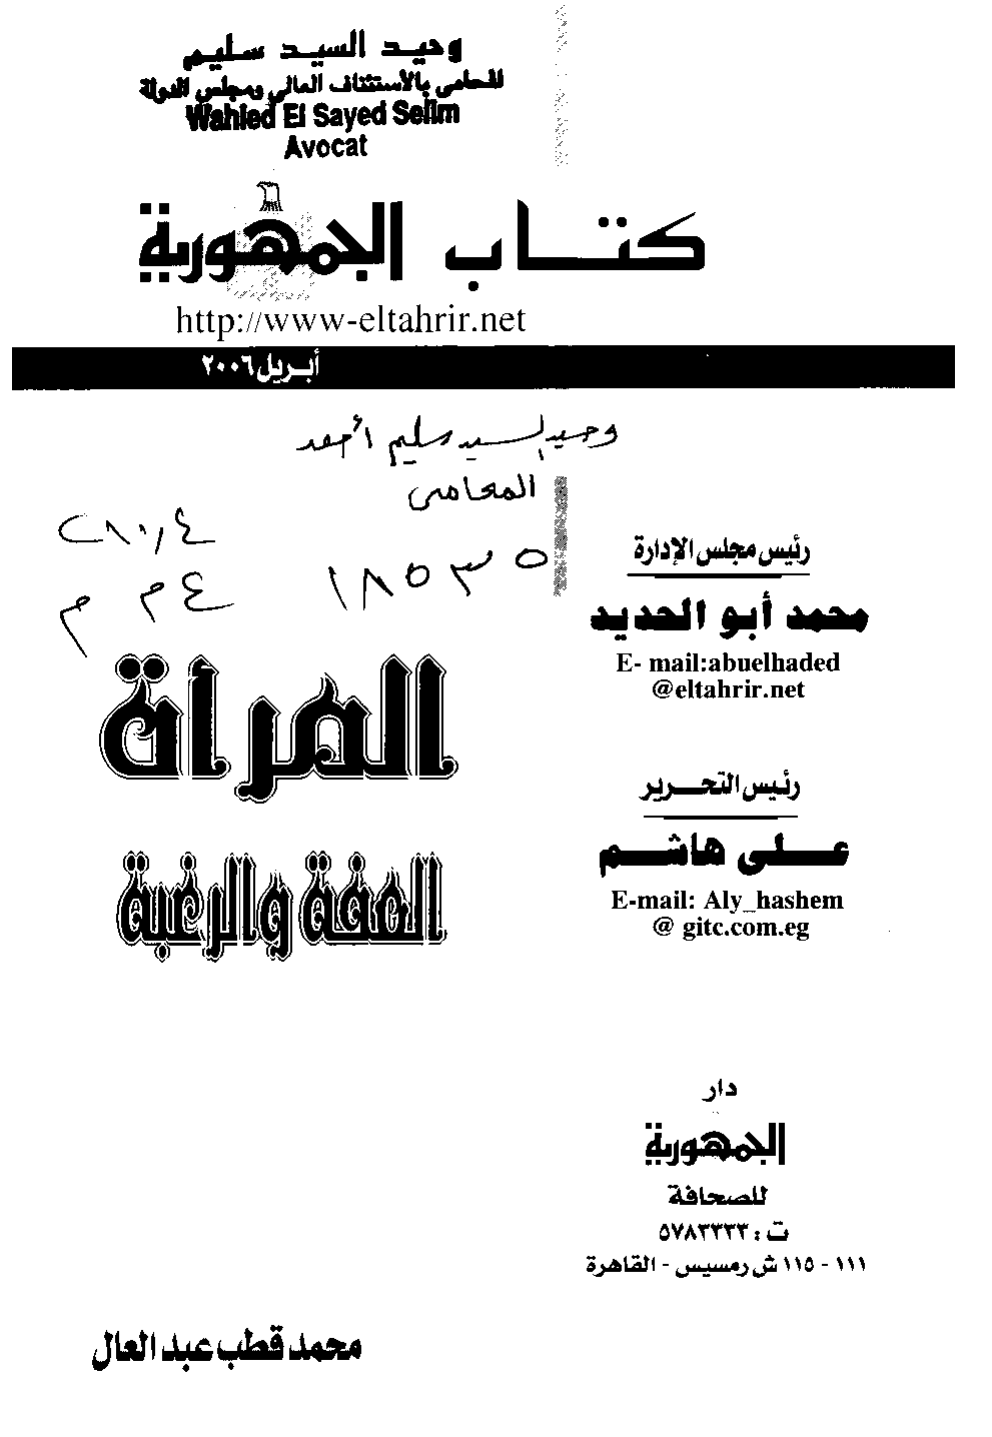 وحيد السيد سليم
المحامى بالأستئناف العالي ومجلس الدولة
Wahied El Sayed Selim
Avocat
كتاب الجمهورية
http://www-eltahrir.net
أبريل ٢٠٠٦
وحيد السيد سليم أحمد
المحامى
١٨٥٣٥
رئيس مجلس الإدارة
محمد أبو الحديد
E- mail:abuelhaded
@eltahrir.net
المرأة
العفة والرغبة
رئيس التحرير
على هاشم
E-mail: Aly_hashem
@ gitc.com.eg
دار
الجمهورية
للصحافة
ت : ٥٧٨٣٣٣٣
١١١ - ١١٥ ش رمسيس - القاهرة
محمد قطب عبد العال